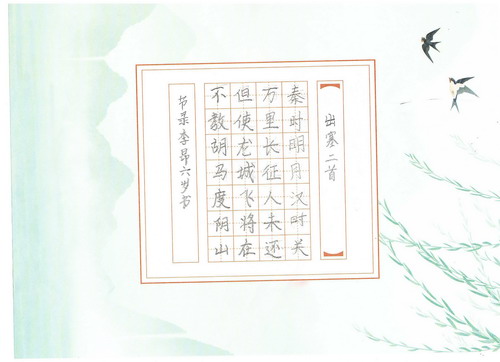 出塞二首
秦时明月汉时关
万里长征人未还
但使龙城飞将在
不教胡马度阴山
节录李昂六岁书